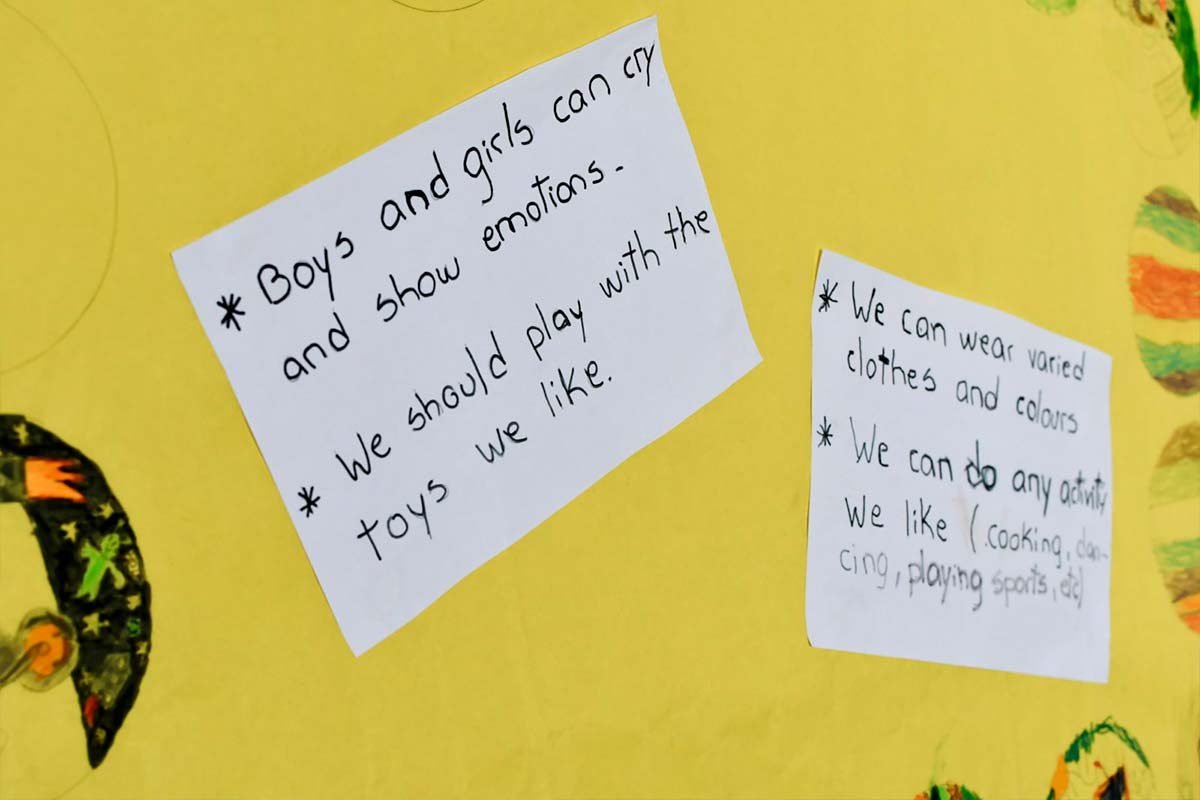 * Boys and girls can cry
and show emotions.
* We should play with the
toys we like.
* We can wear varied
clothes and colours
* We can do any activity
we like (cooking, dan-
cing, playing sports, etc)